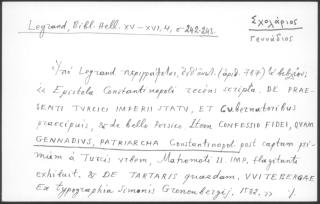 Legrand, Bibl. Hell. XV–XVI, 4, σ 242-243.
Σχολάριος
Γεννάδιος
Ὑπὸ Legrand περιγράφεται, (ἀριθ. 787) τὸ βιβλίον:
Epistola Constantinopoli recens scripta. DE PRAE-
SENTI TVRCICI IMPERII STATV, ET Gubernatoribus
praecipuis, & de bello Persico Item CONFESSIO FIDEI, QVAM
GENNADIVS, PATRIARCHA Constantinopol. post captam pri-
mùm à TVRCIS vrbem, Mahometi II. IMP. flagitanti
exhibuit. & DE TARTARIS quaedam, VVITEBERGAE
Ex typographia Simonis Gronenbergij. 1582. »